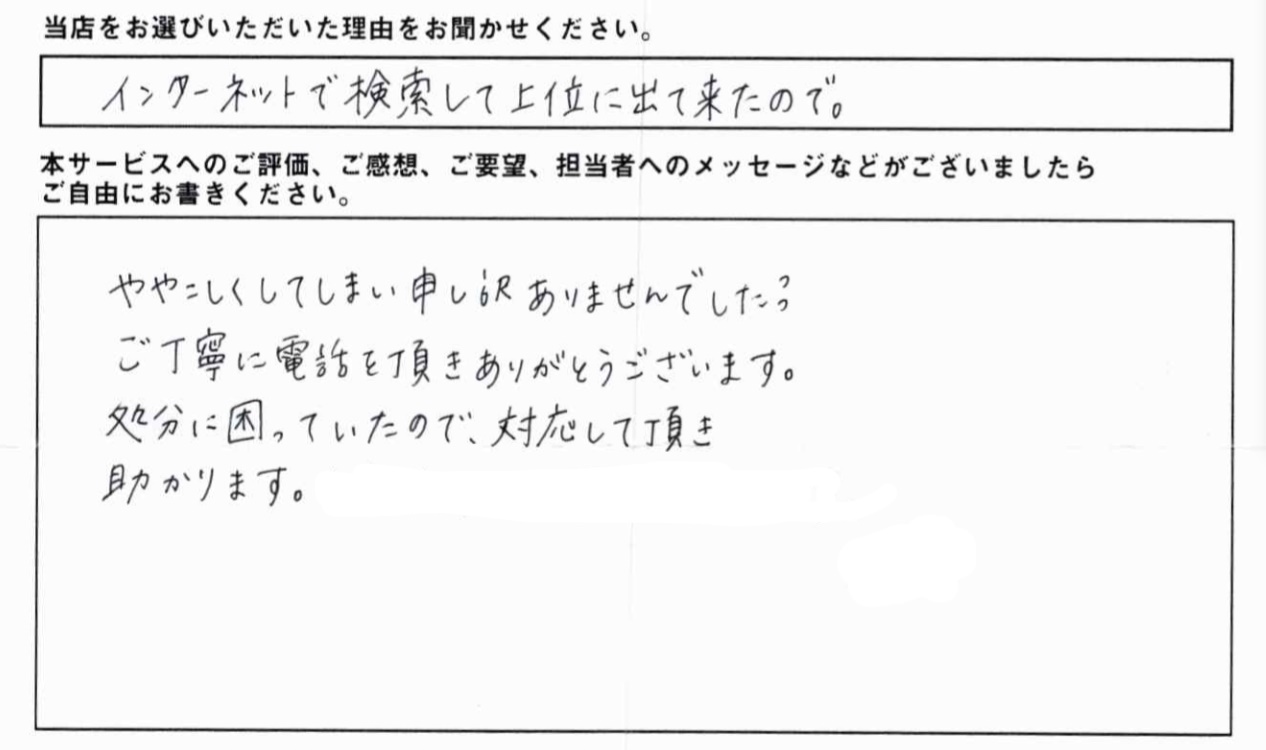 当店をお選びいただいた理由をお聞かせください。
インターネットで検索して上位に出て来たので。
本サービスへのご評価、ご感想、ご要望、担当者へのメッセージなどがございましたら
ご自由にお書きください。
ややこしくしてしまい申し訳ありませんでした
ご丁寧に電話を頂きありがとうございます。
処分に困っていたので、対応して頂き
助かります。